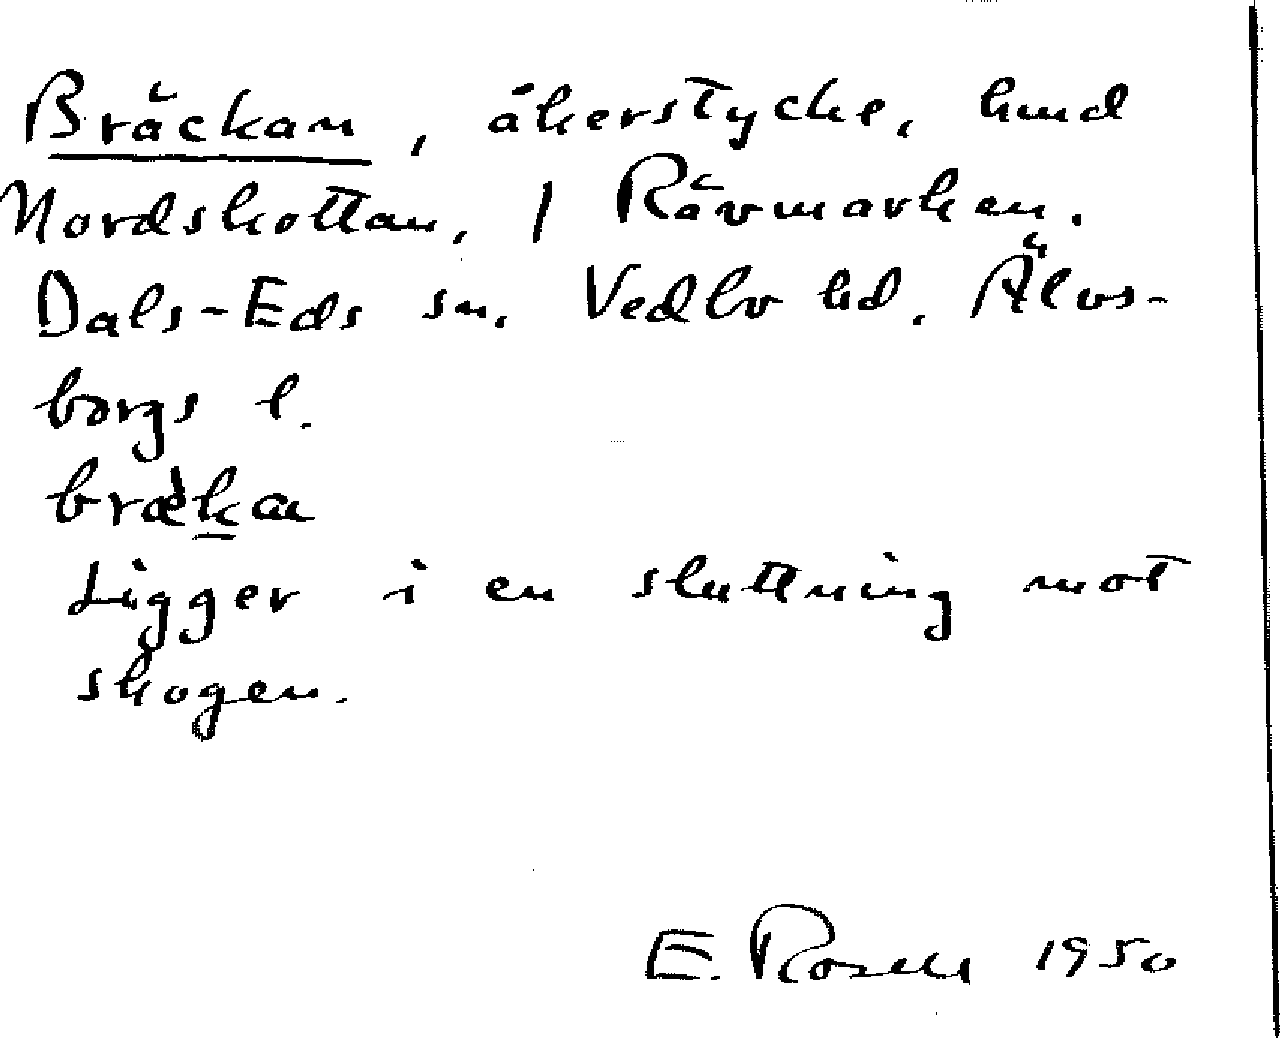 Bräckan, åkerstycke, hmd
Nordskottan, / Rävmarken.
Dals-Eds sn. Vedbo hd. Älvs-
borgs l.
brækan
Ligger i en sluttning mot
skogen.
E. Rosell 1950